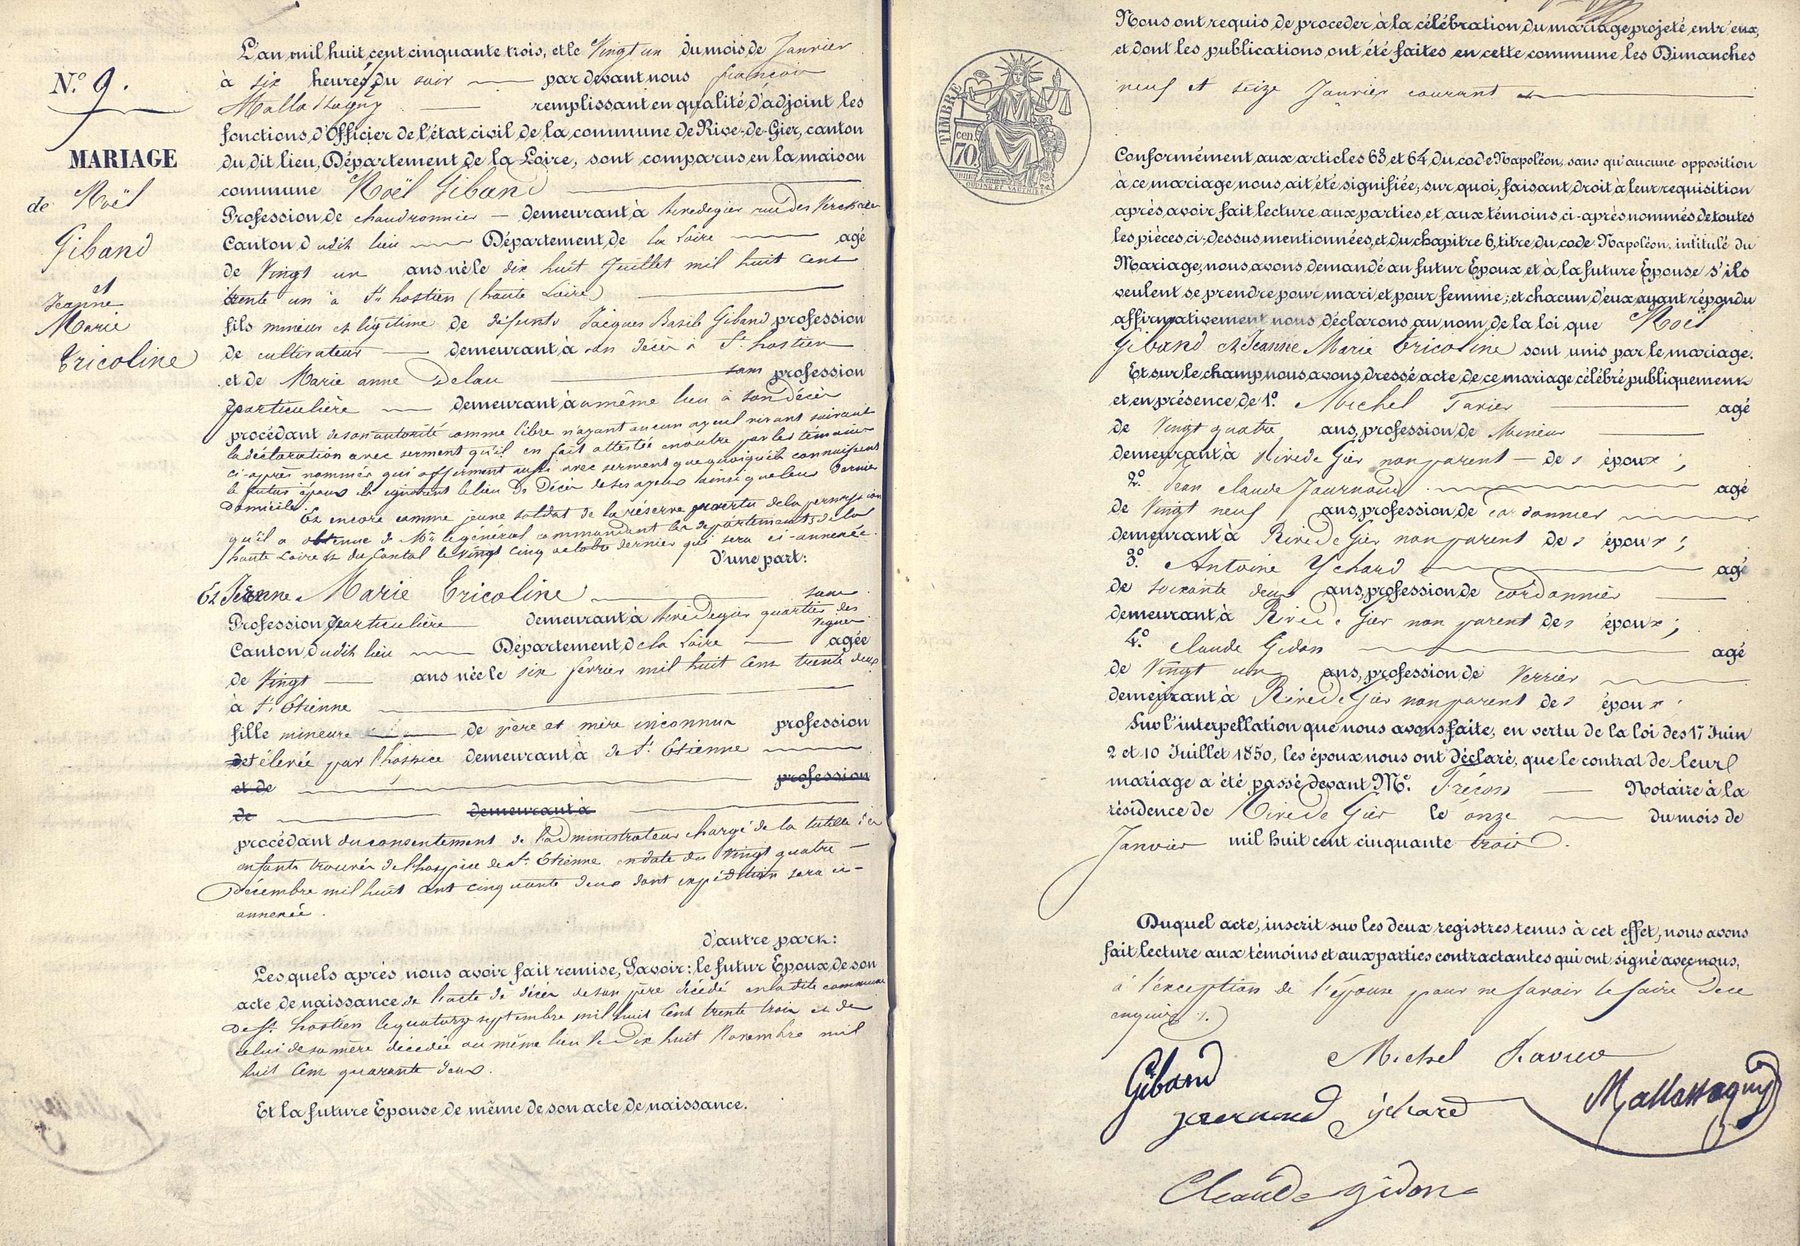 N.º 9.
MARIAGE
de Noël
Giband
et
Jeanne
Marie
Tricoline
L'an mil huit cent cinquante trois, et le Vingt un du mois de Janvier
à six heures du soir par devant nous françois
Mallassagny remplissant en qualité d'adjoint les
fonctions d'Officier de l'état civil de la commune de Rive-de-Gier, canton
du dit lieu, Département de la Loire, sont comparus en la maison
commune Noël Giband
Profession de chaudronnier demeurant à Rivedegier rue des Verchères
Canton dudit lieu Département de la Loire agé
de Vingt un ans né le dix huit Juillet mil huit cent
trente un à St hostien (haute Loire)
fils mineur et légitime de défunts Jacques Basile Giband profession
de cultivateur demeurant à son décès à St hostien
et de Marie anne Delau sans profession
particulière demeurant au même lieu à son décès
procédant de son autorité comme libre n'ayant aucun ayeul vivant suivant
la déclaration avec serment qu'il en fait attestée en outre par les témoins
ci-après nommés qui affirment aussi avec serment que quoiqu'ils connaissent
le futur époux ils ignorent le lieu du Décès de ses ayeux ainsi que leur dernier
domicile.
Et encore comme jeune soldat de la réserve en vertu de la permission
qu'il a obtenue de Mr le général commandant les départements de la
haute Loire et du Cantal le vingt cinq octobre dernier qui sera ci-annexée.
D'une part:
Et Jeanne Marie Tricoline sans
Profession particulière demeurant à Rivedegier quartier des
Vignes
Canton dudit lieu Département de la Loire agée
de Vingt ans née le six fevrier mil huit cent trente deux
à St Etienne
fille mineure de père et mère inconnus profession
et élevée par l'hospice demeurant à de St Etienne
et de profession
de demeurant à
procédant du consentement de l'administrateur chargé de la tutelle des
enfants trouvés de l'hospice de St Etienne en date du Vingt quatre
Décembre mil huit cent cinquante deux dont expédition sera ci-
annexée.
d'autre part:
Lesquels après nous avoir fait remise, Savoir: le futur Epoux de son
acte de naissance, de l'acte de décès de son père décédé en la dite commune
de St hostien le quatorze septembre mil huit cent trente trois et de
celui de sa mère décédée au même lieu le Dix huit Novembre mil
huit cent quarante deux.
Et la future Epouse de même de son acte de naissance.
Nous ont requis de procéder à la célébration du mariage projeté entr'eux,
et dont les publications ont été faites en cette commune les Dimanches
neuf et seize Janvier courant
TIMBRE
70 cen.
Conformément aux articles 63 et 64 du code Napoléon, sans qu'aucune opposition
à ce mariage nous ait été signifiée; sur quoi, faisant droit à leur requisition
après avoir fait lecture aux parties et aux témoins, ci-après nommés de toutes
les pièces ci-dessus mentionnées, et du chapitre 6, titre du code Napoléon, intitulé du
Mariage, nous avons demandé au futur Epoux et à la future Epouse s'ils
veulent se prendre pour mari et pour femme; et chacun d'eux ayant répondu
affirmativement nous déclarons au nom de la loi que Noël
Giband et Jeanne Marie Tricoline sont unis par le mariage.
Et sur le champ nous avons dressé acte de ce mariage célébré publiquement
et en présence de 1.º Michel Favier agé
de Vingt quatre ans, profession de Mineur
demeurant à Rivede Gier non parent des époux;
2.º Jean Claude Journoud agé
de Vingt neuf ans, profession de cordonnier
demeurant à Rivede Gier non parent des époux;
3.º Antoine Ychard agé
de soixante deux ans, profession de cordonnier
demeurant à Rivede Gier non parent des époux;
4.º Claude Gidon agé
de Vingt un ans, profession de Verrier
demeurant à Rivede Gier non parent des époux.
Sur l'interpellation que nous avons faite, en vertu de la loi des 17 Juin
2 et 10 Juillet 1850, les époux nous ont déclaré, que le contrat de leur
mariage a été passé devant M.e Frécon Notaire à la
résidence de Rivede Gier le onze du mois de
Janvier mil huit cent cinquante trois.
Duquel acte, inscrit sur les deux registres tenus à cet effet, nous avons
fait lecture aux témoins et aux parties contractantes qui ont signé avec nous,
à l'exception de l'épouse pour ne savoir le faire de ce
enquise.
Giband Michel Favier
Journoud Ychard Mallassagny
Claude gidon